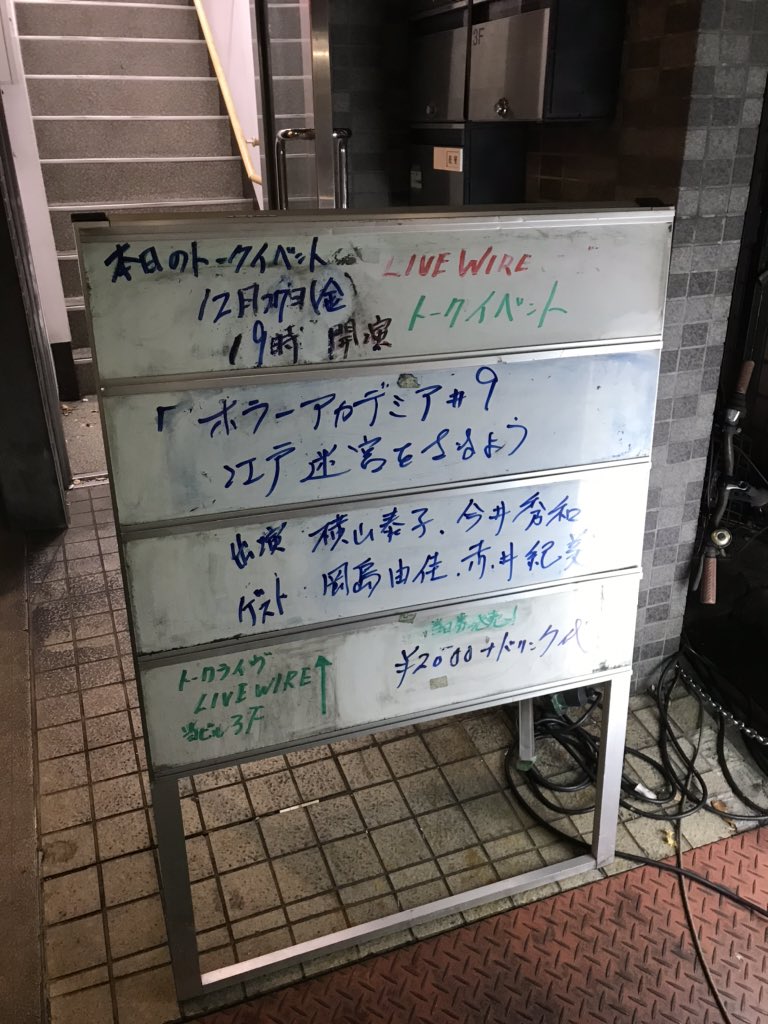 3F
本日のトークイベント LIVE WIRE
12月27日(金) トークイベント
19時 開演
「ホラーアカデミア#9
江戸迷宮をさまよう
出演 横山泰子、今井秀和
ゲスト 岡島由佳、赤井紀美
当日券発売!
¥2000+ドリンク代
トークライヴ
LIVE WIRE ↑
当ビル3F